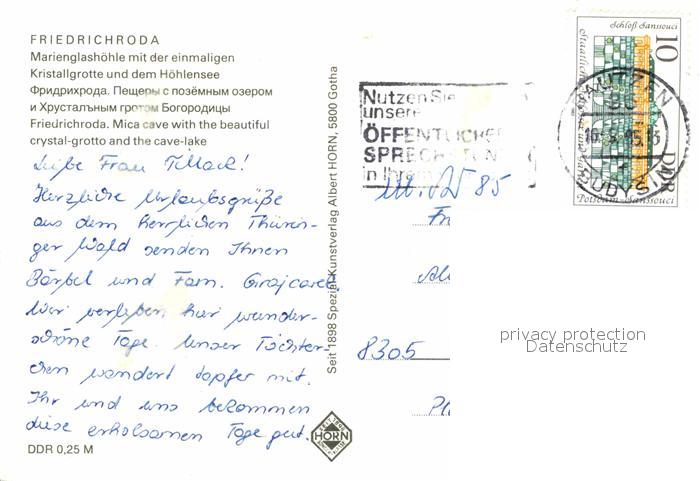 FRIEDRICHRODA
Marienglashöhle mit der einmaligen
Kristallgrotte und dem Höhlensee
Фридрихрода. Пещеры с позёмным озером
и Хрусталъным гротом Богородицы
Friedrichroda. Mica cave with the beautiful
crystal-grotto and the cave-lake
Liebe Frau Tillack!
Herzliche Urlaubsgrüße
aus dem herrlichen Thürin-
ger Wald senden Ihnen
Bärbel und Fam.
Wir verleben hier wunder-
schöne Tage. Unser Töchter-
chen wandert tapfer mit.
Ihr und uns bekommen
diese erholsamen Tage gut.
DDR 0,25 M
Seit 1898 Spezial-Kunstverlag Albert HORN, 5800 Gotha
HORN
Nutzen Sie
unsere
ÖFFENTLICHE
in Ihrem
85
8305
Schloß Sanssouci
10
DDR
Potsdam-Sanssouci
BAUTZEN
privacy protection
Datenschutz